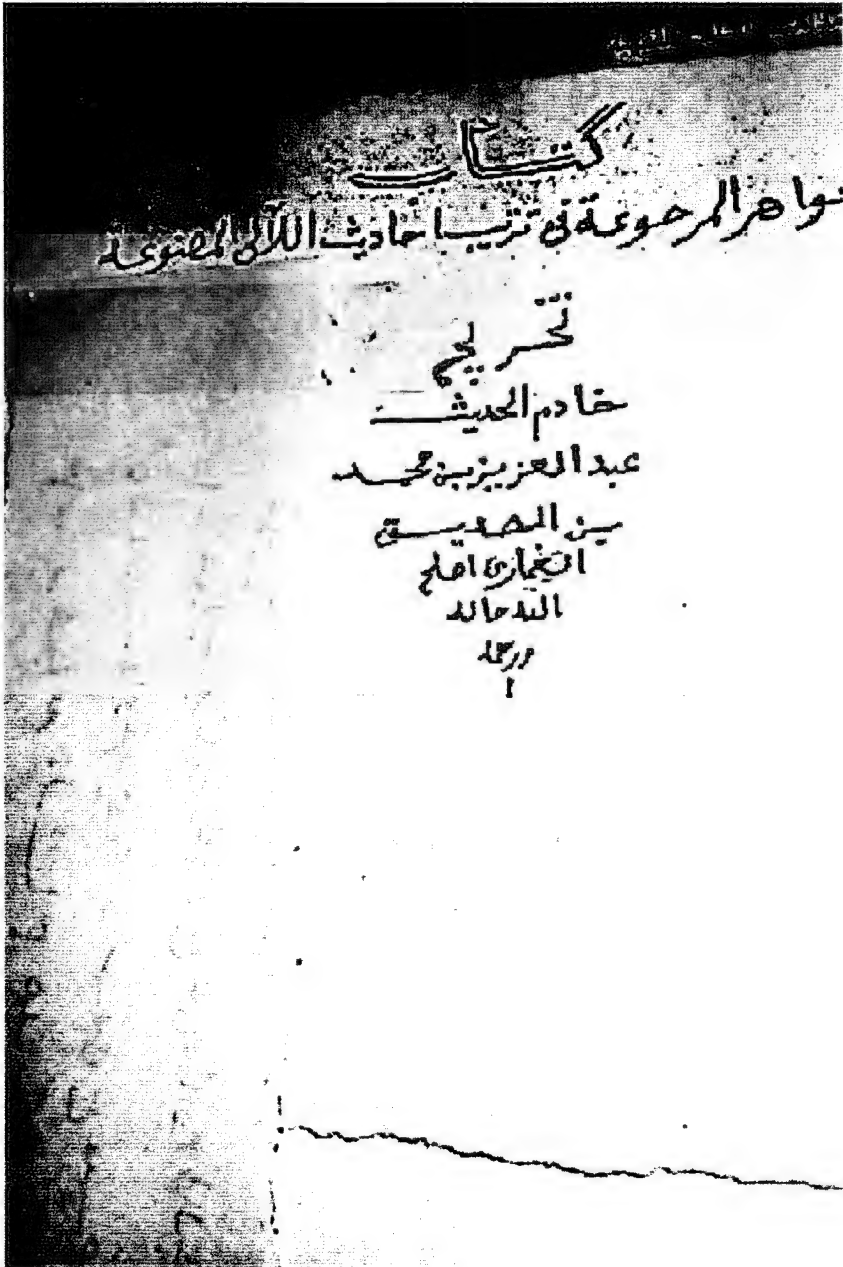 كتاب
واهر المرصوعة في ترتيب أحاديث اللآلئ المصنوعة
تخريج
خادم الحديث
عبد العزيز بن محمد
بن الصديق
الغماري اصلح
الله حاله